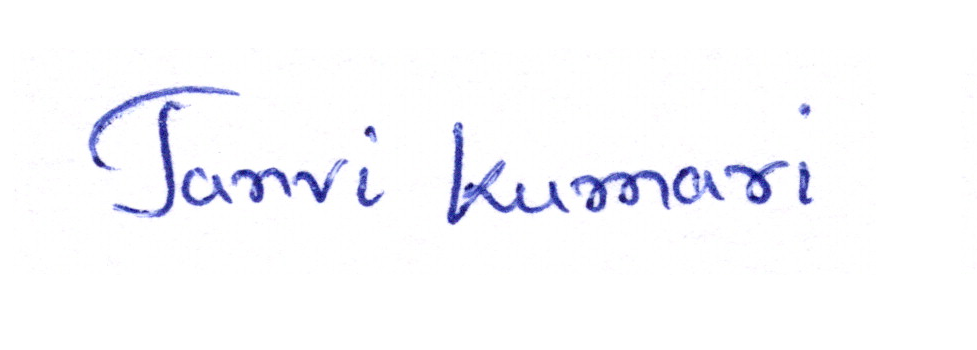 Tanvi Kumari